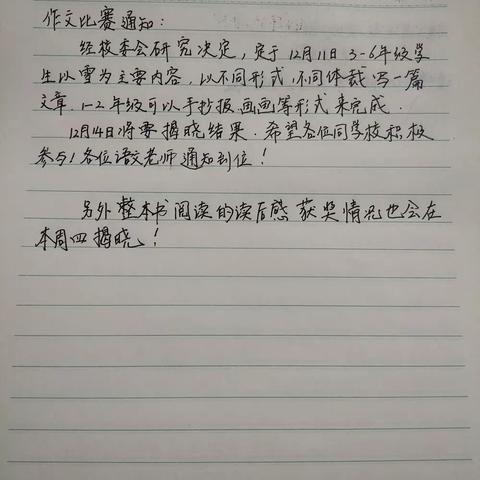 作文比赛通知:
经校委会研究决定,定于12月11日3-6年级学
生以雪为主要内容,以不同形式,不同体裁写一篇
文章.1-2年级可以手抄报画画等形式来完成.
12月14日将要揭晓结果.希望各位同学校积极
参与!各位语文老师通知到位!
另外整本书阅读的读后感获奖情况也会在
本周四揭晓!